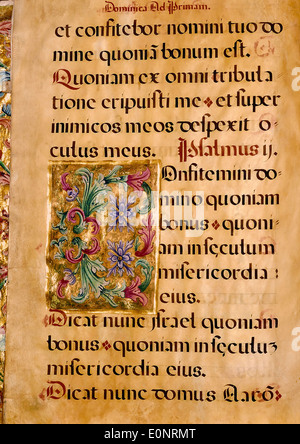 Dominica Ad Primam.
et confitebor nomini tuo do
mine quoniã bonum est.
Quoniam ex omni tribula
tione eripuisti me et super
inimicos meos despexit o-
culus meus. Psalmus ij.
Confitemini do-
mino quoniam
bonus quoni-
am in sęculum
misericordia :
eius.
Dicat nunc israel quoniam
bonus quoniam in sęculuȝ
misericordia eius.
Dicat nunc domus Aarõ
alamy
alamy
a
a
E0NRMT
www.alamy.com